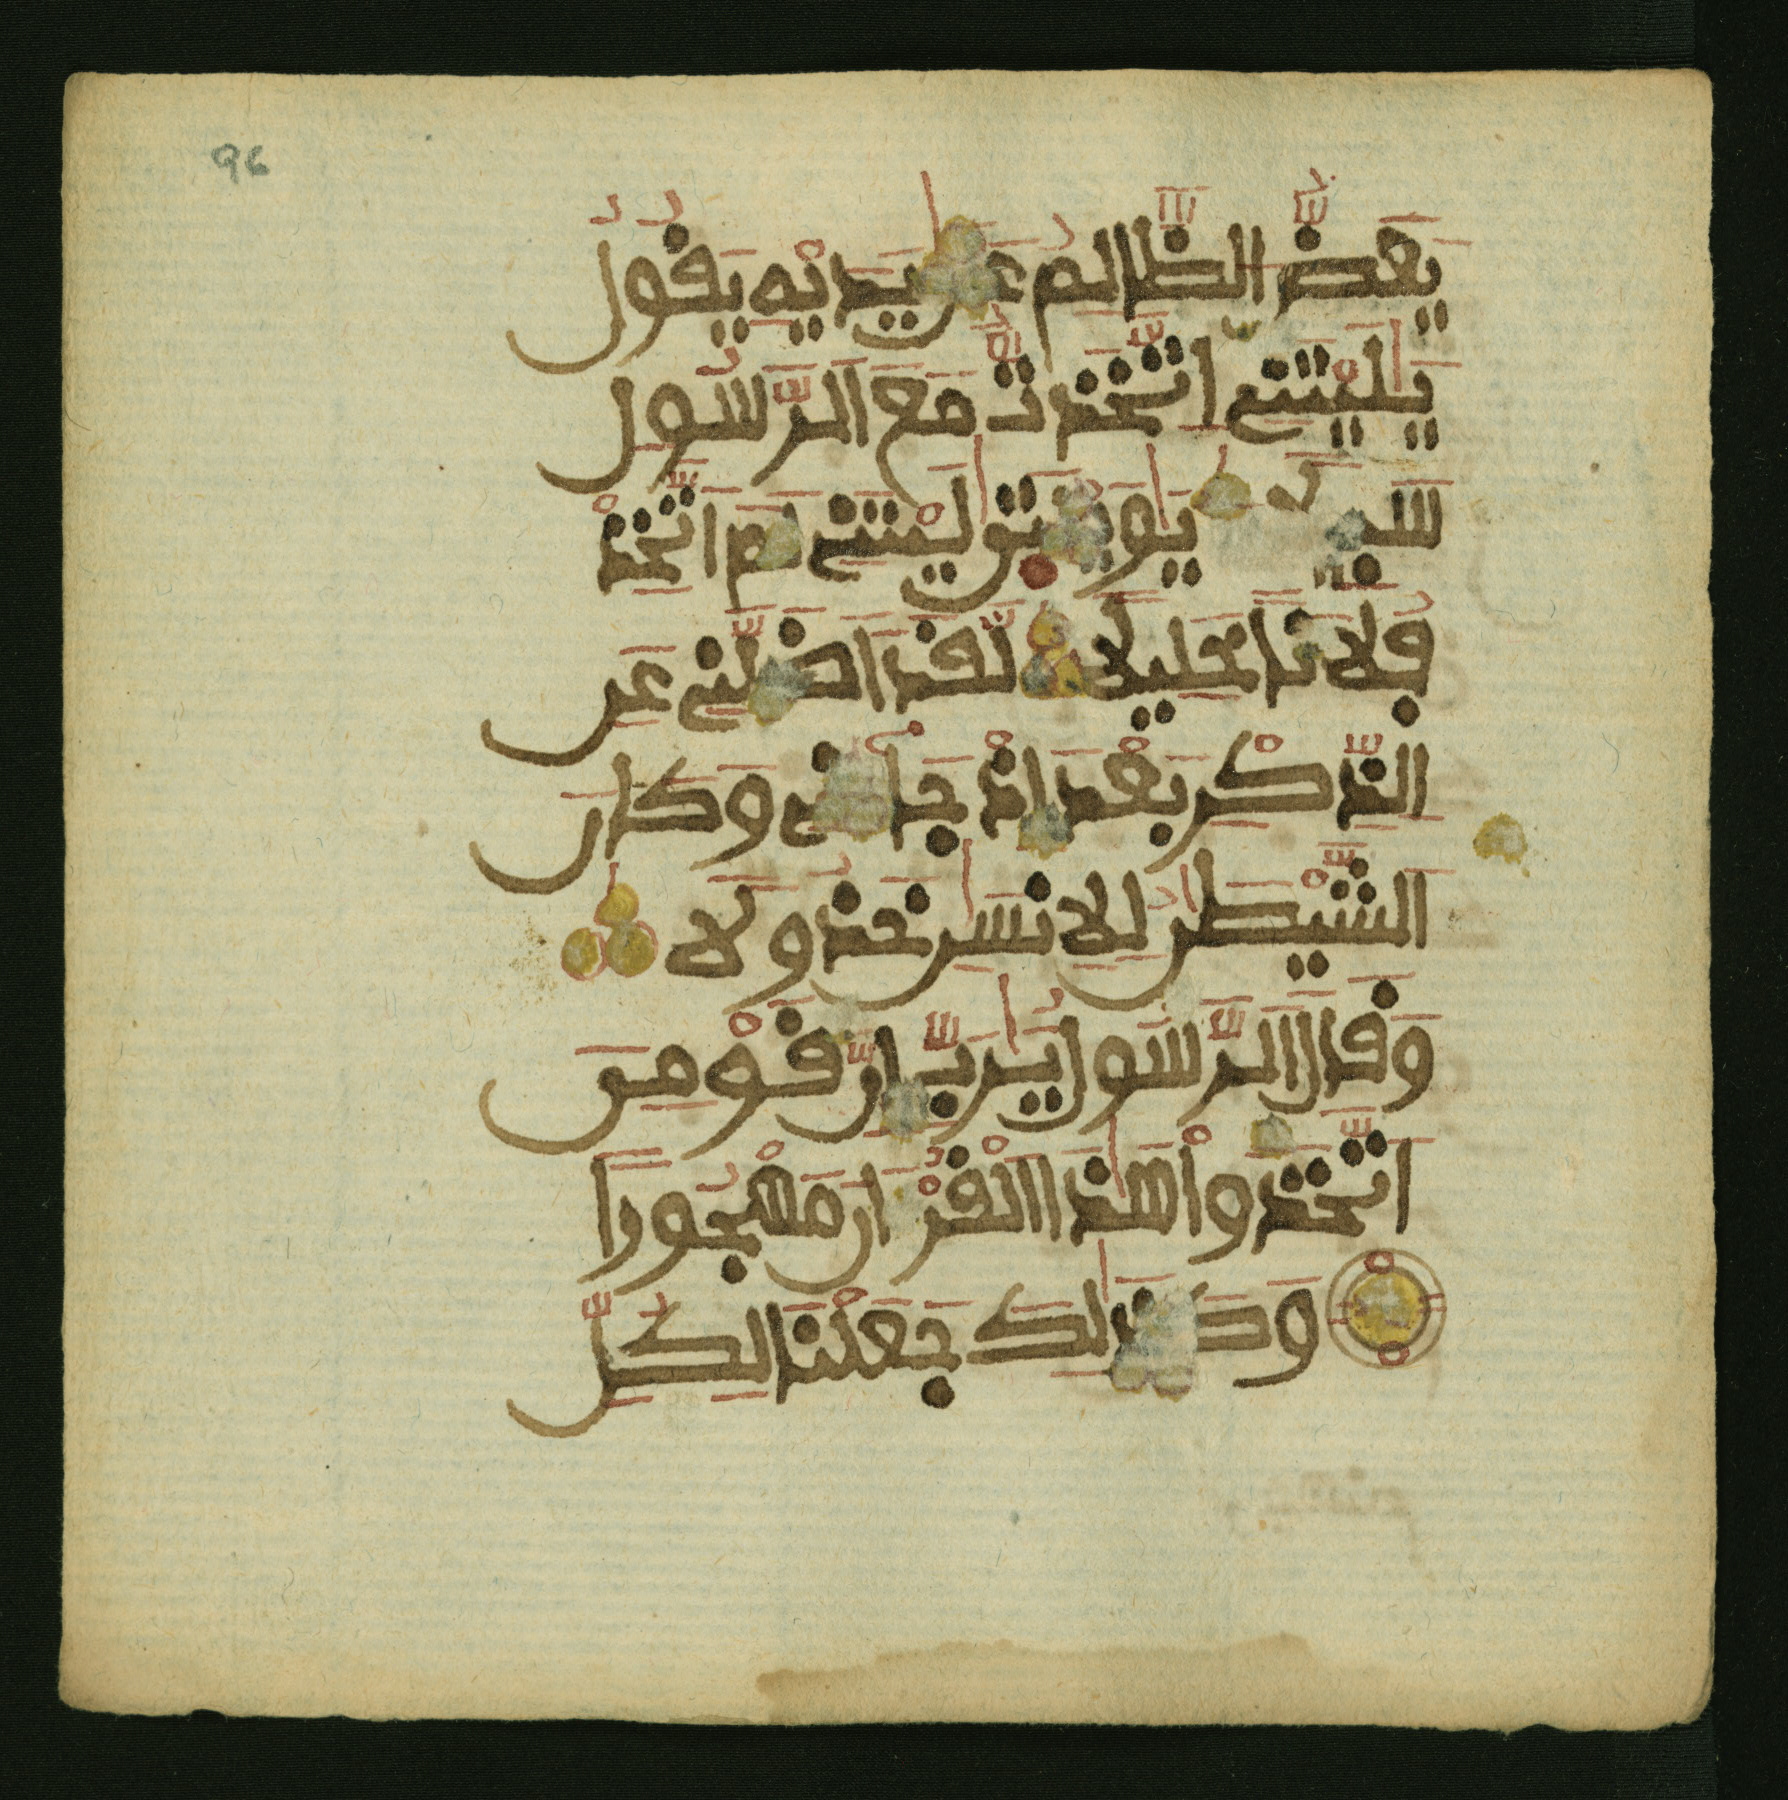 96
يَعَضُّ الظَّالِمُ عَلَىٰ يَدَيْهِ يَقُولُ
يَٰلَيْتَنِے اِتَّخَذتُّ مَعَ اَلرَّسُولِ
سَبِيلاً يَٰوَيْلَتَىٰ لَيْتَنِے لَمَ اَتَّخِذْ
فُلَاناً خَلِيلاً لَّقَدَ اَضَلَّنِے عَنِ
اِلذِّكْرِ بَعْدَ إِذْ جَآءَنِے وَكَانَ
اَلشَّيْطَٰنُ لِلِانسَٰنِ خَذُولاً
وَقَالَ اَلرَّسُولُ يَٰرَبِّ إِنَّ قَوْمِيَ
اَتَّخَذُواْ هَٰذَا اَلْقُرْءَانَ مَهْجُوراً
وَكَذَٰلِكَ جَعَلْنَا لِكُلِّ